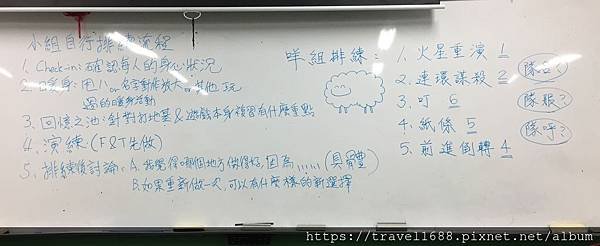 小組自行排練流程
1. Check-in: 確認每人的身心狀況
2. 暖身: 用1 or 名字動作放大 or 其他玩
過的暖身活動
3. 回憶之池: 針對打地基 & 遊戲本身複習有什麼重點
4. 演練: (F&T先做)
5. 排練後討論: A. 我覺得哪個地方做得好, 因為...... (具體)
B. 如果重新做一次, 可以有什麼樣的新選擇
咩組排練:
1. 火星重演 1
2. 連環謀殺 2
3. 叮 6
4. 紙條 5
5. 前進倒轉 4
隊名?
隊服?
隊呼?
https://travel1688.pixnet.net/album